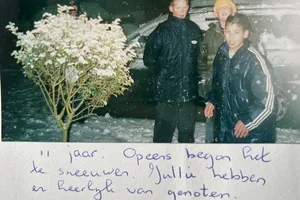 11 jaar. Opeens begon het
te sneeuwen. Jullie hebben
er heerlijk van genoten.